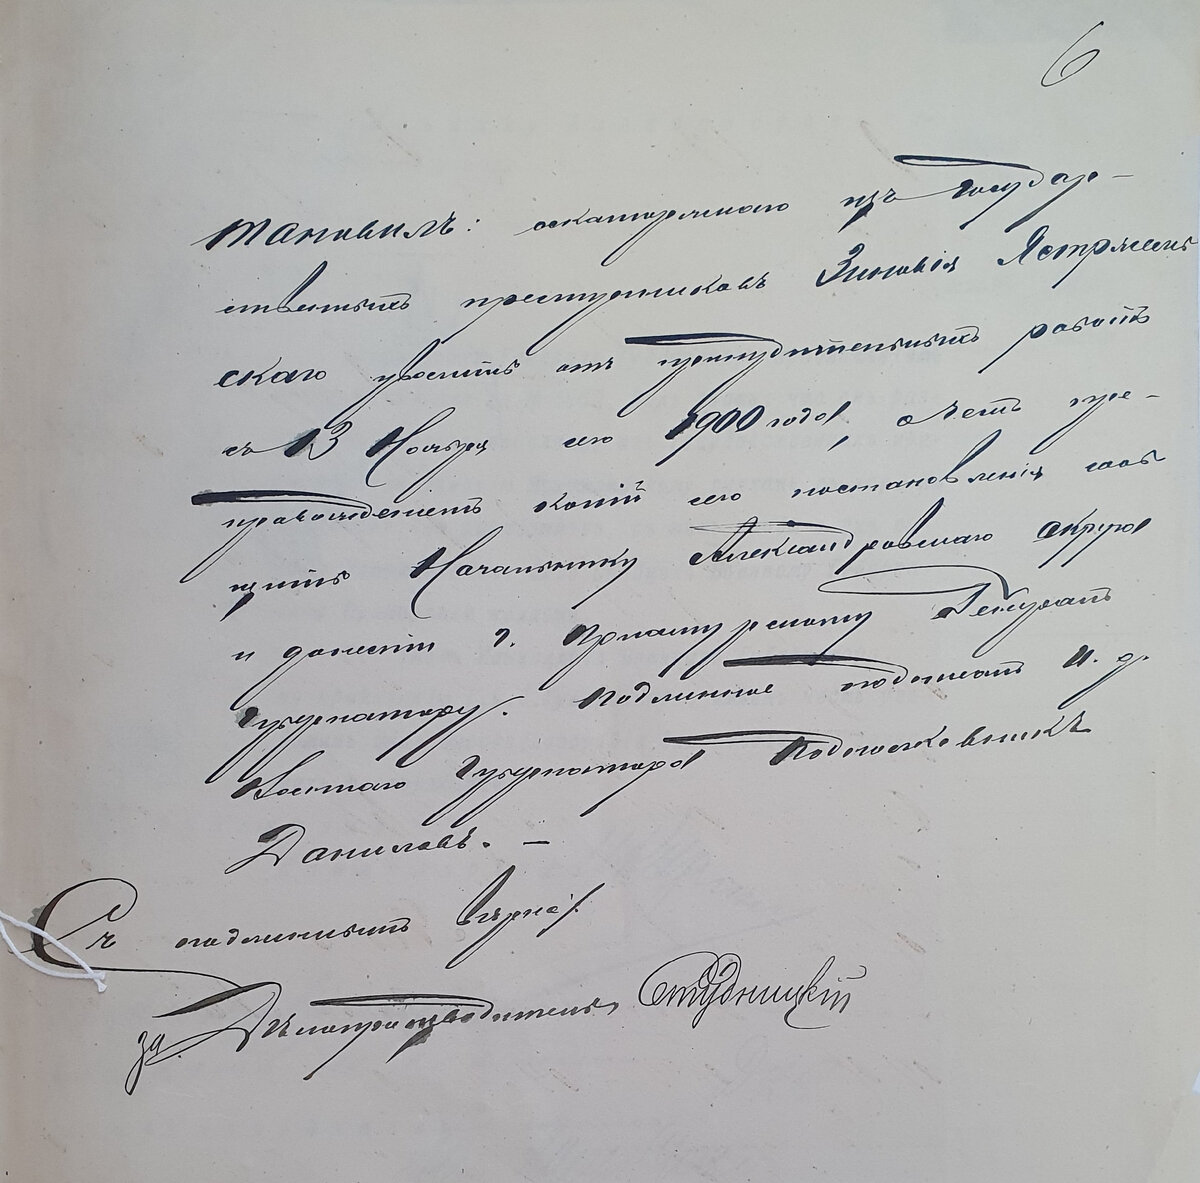 6
тановилъ: оскаторжнаго изъ Государ-
ственныхъ преступниковъ Зиновія Ястржемб
скаго уволить отъ принудительныхъ работъ
съ 13 Ноября сего 1900 года, о чемъ пре-
провожденіемъ копій сего постановленія сооб
щить Начальнику Александровскаго округа
и донести Г. Приамурскому Генералъ
Губернатору. Подлинное подписалъ И. д.
Военнаго Губернатора Подполковникъ
Даниловъ. —
Съ подлиннымъ вѣрно:
за Дѣлопроизводитель, Студницкій